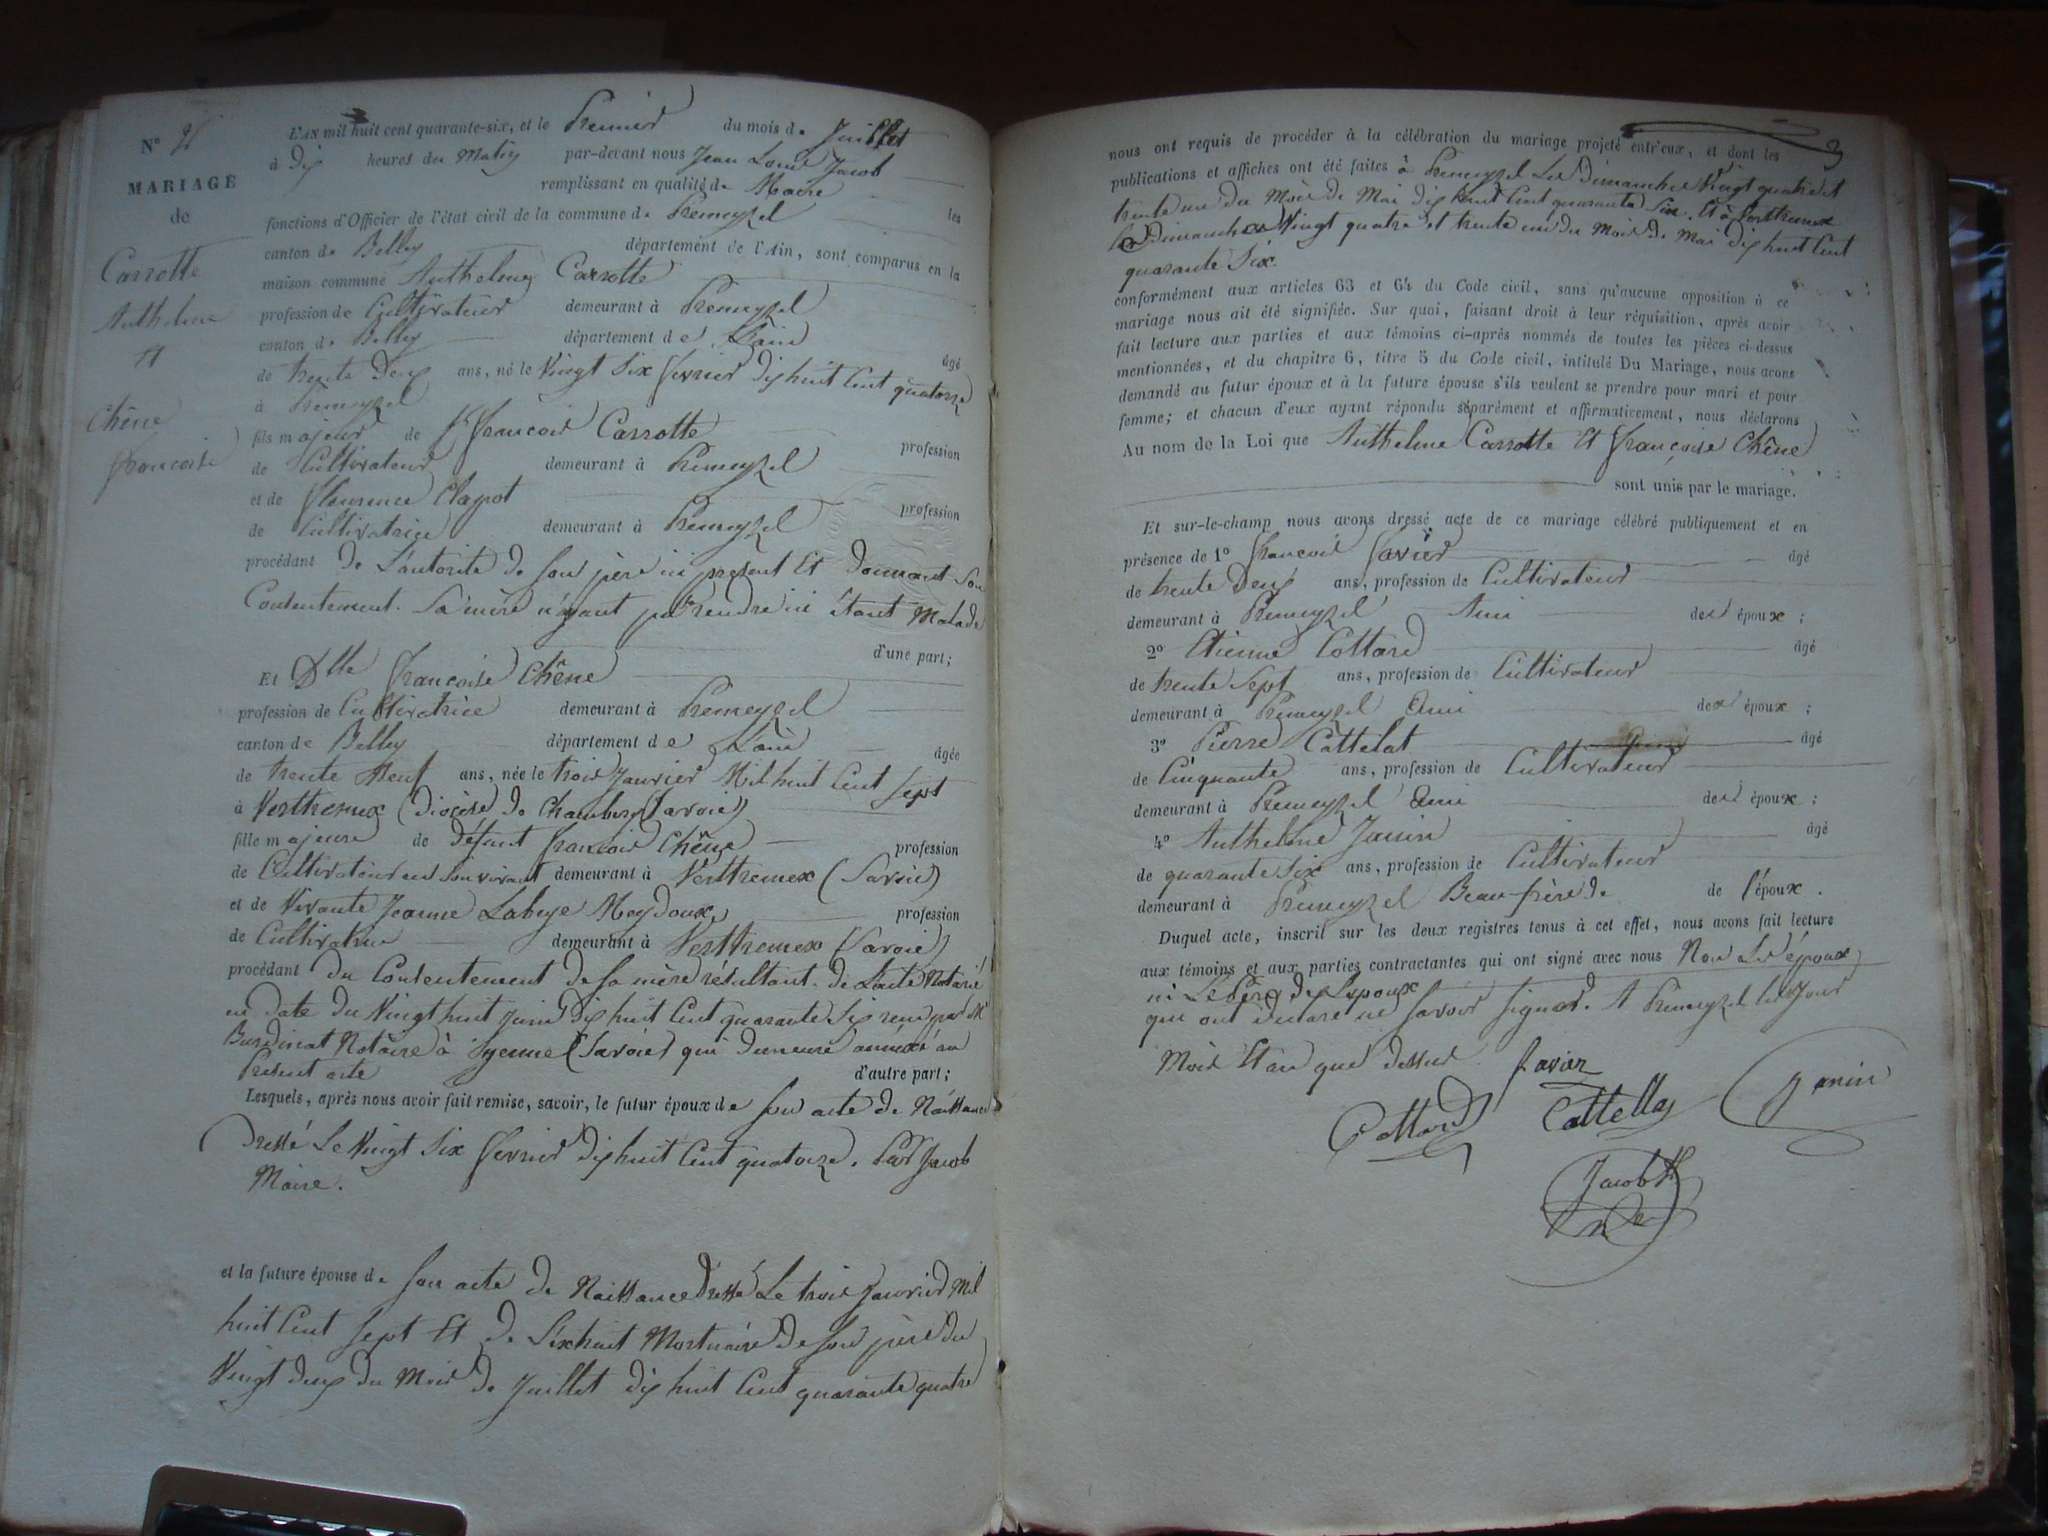 N° 2
MARIAGE
de
Carrotte
Anthelme
et
Chêne
françoise
L'AN mil huit cent quarante-six, et le Premier du mois de Juillet
à dix heures du Matin par-devant nous Jean Louis Jacob
remplissant en qualité de Maire les
fonctions d'Officier de l'état civil de la commune de Premeyzel
canton de Belley département de l'Ain, sont comparus en la
maison commune Anthelme Carrotte
profession de Cultivateur demeurant à Premeyzel
canton de Belley département de L'ain âgé
de trente Deux ans, né le Vingt Six février dix huit Cent quatorze
à Premeyzel
fils majeur de françois Carrotte profession
de Cultivateur demeurant à Premeyzel
et de fleurence Clapot profession
de Cultivatrice demeurant à Premeyzel
procédant de L'autorité de Son père ici présent Et donnant Son
Contentement. Sa mère n'ayant pu rendre ici étant Malade
d'une part;
Et Dlle françoise Chêne
profession de Cultivatrice demeurant à Premeyzel
canton de Belley département de L'ain âgée
de trente Neuf ans, née le trois Janvier Mil huit Cent Sept
à Verthemex (diocèse de Chambery (Savoie)
fille majeure de Défunt françois Chêne profession
de Cultivateur en Son vivant demeurant à Verthemex (Savoie)
et de Vivante Jeanne Labeye Meydoux profession
de Cultivatrice demeurant à Verthemex (Savoie)
procédant du Contentement de Sa mère résultant de L'acte Notarié
en date du Vingt huit Juin Dix huit Cent quarante Six rendu par Me
Burdinat Notaire à Yenne (Savoie) qui demeure annéxé au
Présent acte d'autre part;
Lesquels, après nous avoir fait remise, savoir, le futur époux de Son acte de Naissance
Dressé Le Vingt Six février dix huit Cent quatorze. Par Jacob
Maire.
et la future épouse de Son acte de Naissance Dressé Le trois Janvier Mil
huit Cent Sept Et de L'ixtrait Mortuaire de Son père du
Vingt deux du Mois de Juillet dix huit Cent quarante quatre
nous ont requis de procéder à la célébration du mariage projeté entr'eux, et dont les
publications et affiches ont été faites à Premeyzel Les Dimanches Vingt quatre et
trente un du Mois de Mai dix huit Cent quarante Six. Et à Verthemex
les dimanches Vingt quatre et trente un du Mois de Mai dix huit Cent
quarante Six.
conformément aux articles 63 et 64 du Code civil, sans qu'aucune opposition à ce
mariage nous ait été signifiée. Sur quoi, faisant droit à leur réquisition, après avoir
fait lecture aux parties et aux témoins ci-après nommés de toutes les pièces ci-dessus
mentionnées, et du chapitre 6, titre 5 du Code civil, intitulé Du Mariage, nous avons
demandé au futur époux et à la future épouse s'ils veulent se prendre pour mari et pour
femme; et chacun d'eux ayant répondu séparément et affirmativement, nous déclarons
Au nom de la Loi que Anthelme Carrotte Et françoise Chêne
sont unis par le mariage.
Et sur-le-champ nous avons dressé acte de ce mariage célébré publiquement et en
présence de 1° françois Savier âgé
de trente Deux ans, profession de Cultivateur
demeurant à Premeyzel Ami des époux;
2° Etienne Cottard âgé
de trente Sept ans, profession de Cultivateur
demeurant à Premeyzel Ami des époux;
3° Pierre Cattelat âgé
de Cinquante ans, profession de Cultivateur
demeurant à Premeyzel Ami des époux;
4° Anthelme Janin âgé
de quarante Six ans, profession de Cultivateur
demeurant à Premeyzel Beau-frère de de l'époux.
Duquel acte, inscrit sur les deux registres tenus à cet effet, nous avons fait lecture
aux témoins et aux parties contractantes qui ont signé avec nous Non Les époux
ni Le Père de L'epoux
qui ont déclaré ne Savoir Signer. A Premeyzel les Jour
Mois Et an que dessus
Savier
Cottard Cattella Janin
Jacob